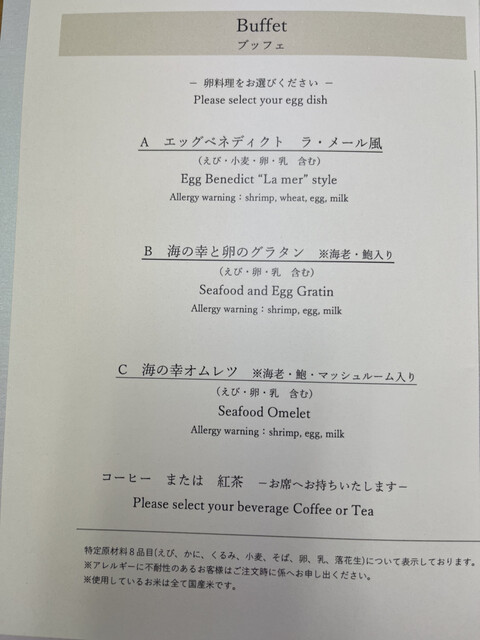 Buffet
ブッフェ
− 卵料理をお選びください −
Please select your egg dish
A エッグベネディクト ラ・メール風
（えび・小麦・卵・乳 含む）
Egg Benedict “La mer” style
Allergy warning：shrimp, wheat, egg, milk
B 海の幸と卵のグラタン ※海老・鮑入り
（えび・卵・乳 含む）
Seafood and Egg Gratin
Allergy warning：shrimp, egg, milk
C 海の幸オムレツ ※海老・鮑・マッシュルーム入り
（えび・卵・乳 含む）
Seafood Omelet
Allergy warning：shrimp, egg, milk
コーヒー または 紅茶 −お席へお持ちいたします−
Please select your beverage Coffee or Tea
特定原材料８品目(えび、かに、くるみ、小麦、そば、卵、乳、落花生)について表示しております。
※アレルギーに不耐性のあるお客様はご注文時に係へお申し出ください。
※使用しているお米は全て国産米です。